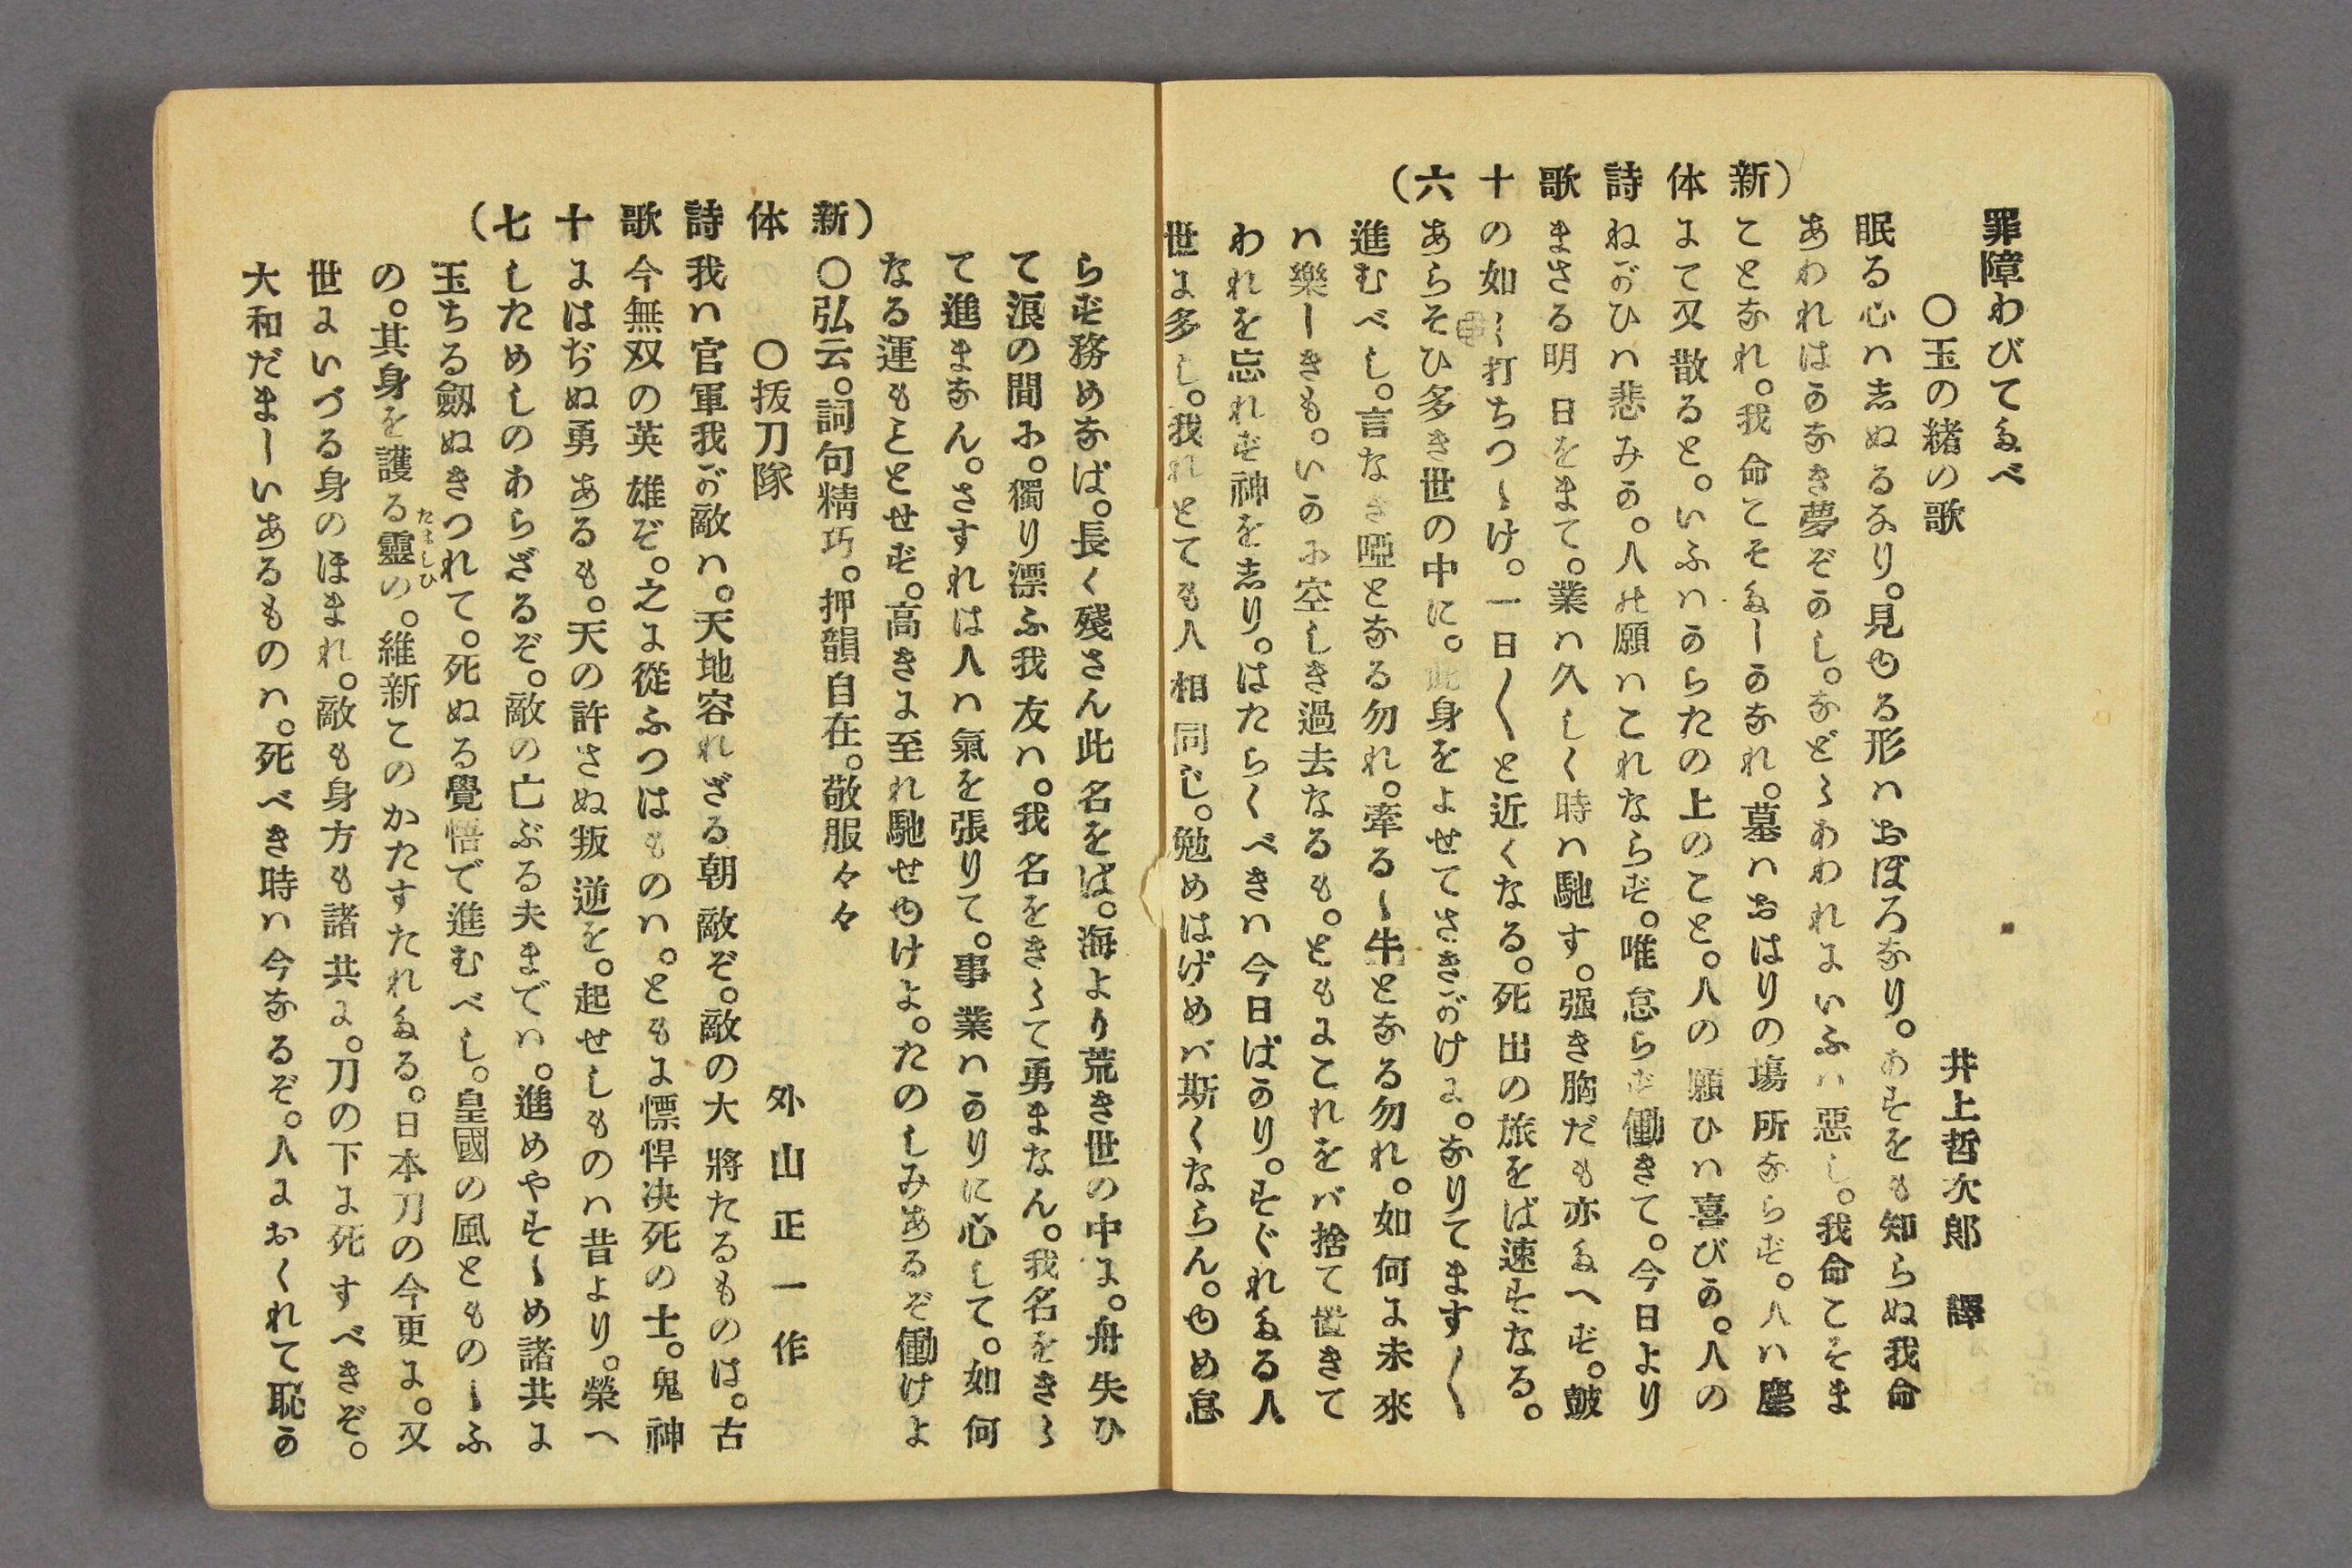 新体詩歌十六)
罪障わびてたべ
○玉の緒の歌　井上哲次郎　譯
眠る心ハ志ぬるなり。見ゆる形ハおぼろなり。あすをも知らぬ我命
あわれはかなき夢ぞかし。などゝあわれにいふハ惡し。我命こそま
ことなれ。我命こそたしかなれ。墓ハおはりの塲所ならず。人ハ塵
にて又散ると。いふハからたの上のこと。人の願ひハ喜びか。人の
ねがひハ悲みか。人の願ハこれならず。唯怠らず働きて。今日より
まさる明日をまて。業ハ久しく時ハ馳す。强き胸だも亦たへず。皷
の如く打ちつゝけ。一日〱と近くなる。死出の旅をば速すなる。
あらそひ多き世の中に。此身をよせてさきがけよ。なりてます〱
進むべし。言なき啞となる勿れ。牽るゝ牛となる勿れ。如何に未來
ハ樂しきも。いかに空しき過去なるも。ともにこれをバ捨て置きて
われを忘れず神を志り。はたらくべきハ今日ばかり。すぐれたる人
世に多し。我れとても人相同じ。勉めはげめバ斯くならん。ゆめ怠
(新体詩歌十七)
らず務めなば。長く殘さん此名をば。海より荒き世の中に。舟失ひ
て浪の間に。獨り漂ふ我友ハ。我名をきゝて勇まなん。我名をきゝ
て進まなん。さすれは人ハ氣を張りて。事業ハかりに心して。如何
なる運もことせず。高きに至れ馳せゆけよ。たのしみあるぞ働けよ
○弘云。詞句精巧。押韻自在。敬服々々
○拔刀隊　外山正一作
我ハ官軍我が敵ハ。天地容れざる朝敵ぞ。敵の大將たるものは。古
今無双の英雄ぞ。之に從ふつはものハ。ともに慓悍决死の士。鬼神
にはぢぬ勇あるも。天の許さぬ叛逆を。起せしものハ昔より。榮へ
したためしのあらざるぞ。敵の亡ぶる夫までハ。進めやすゝめ諸共に
玉ちる劔ぬきつれて。死ぬる覺悟で進むべし。皇國の風とものゝふ
の。其身を護る靈の。維新このかたすたれたる。日本刀の今更に。又
たましひ
世にいづる身のほまれ。敵も身方も諸共に。刀の下に死すべきぞ。
大和だましいあるものハ。死べき時ハ今なるぞ。人におくれて恥か